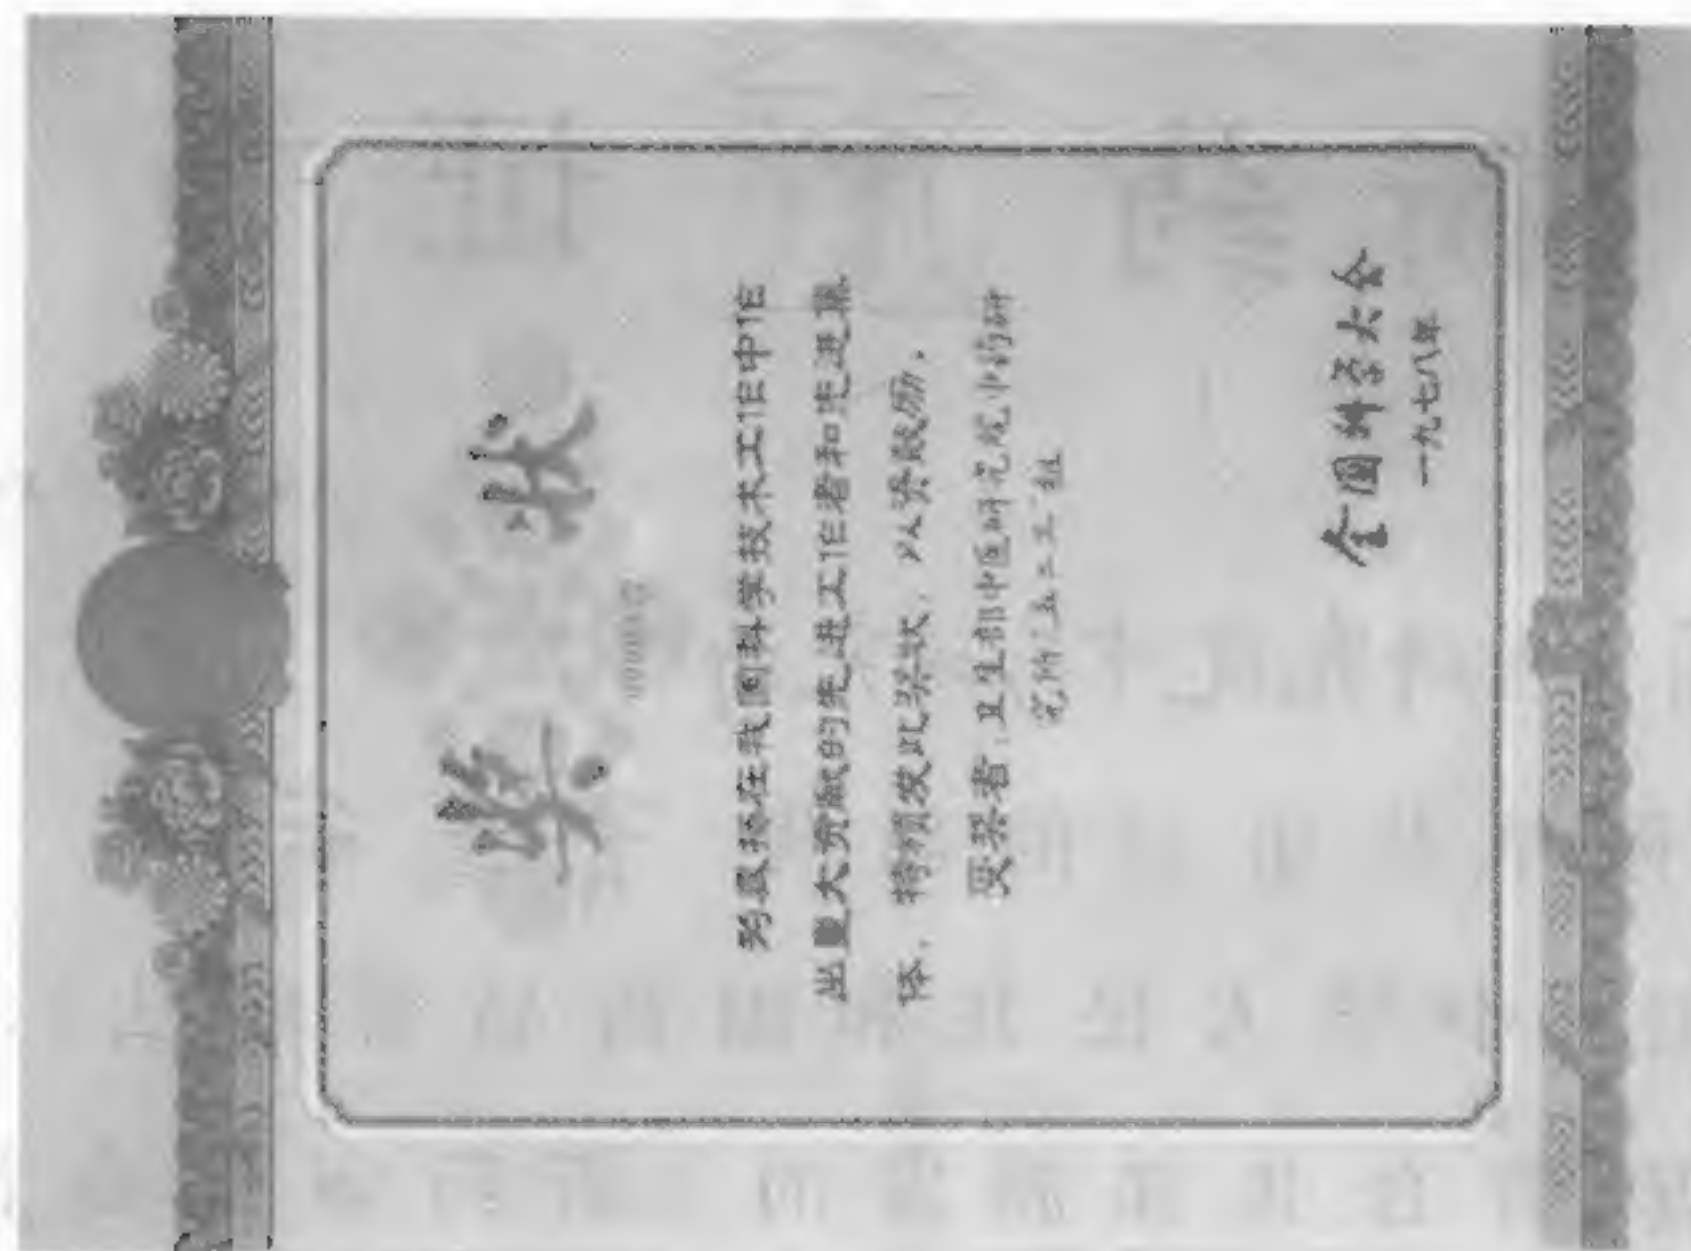 奖状
为表扬在我国科学技术工作中作
出重大贡献的先进工作者和先进集
体,特颁发此奖状,以资鼓励。
受奖者:卫生部中医研究院中药研
究所五二三组
全国科学大会
一九七八年